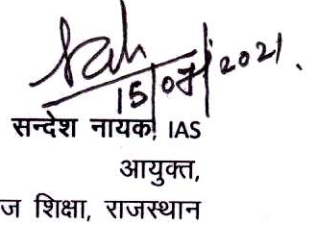 15/07/2021.
सन्देश नायक, IAS
आयुक्त,
ज शिक्षा, राजस्थान